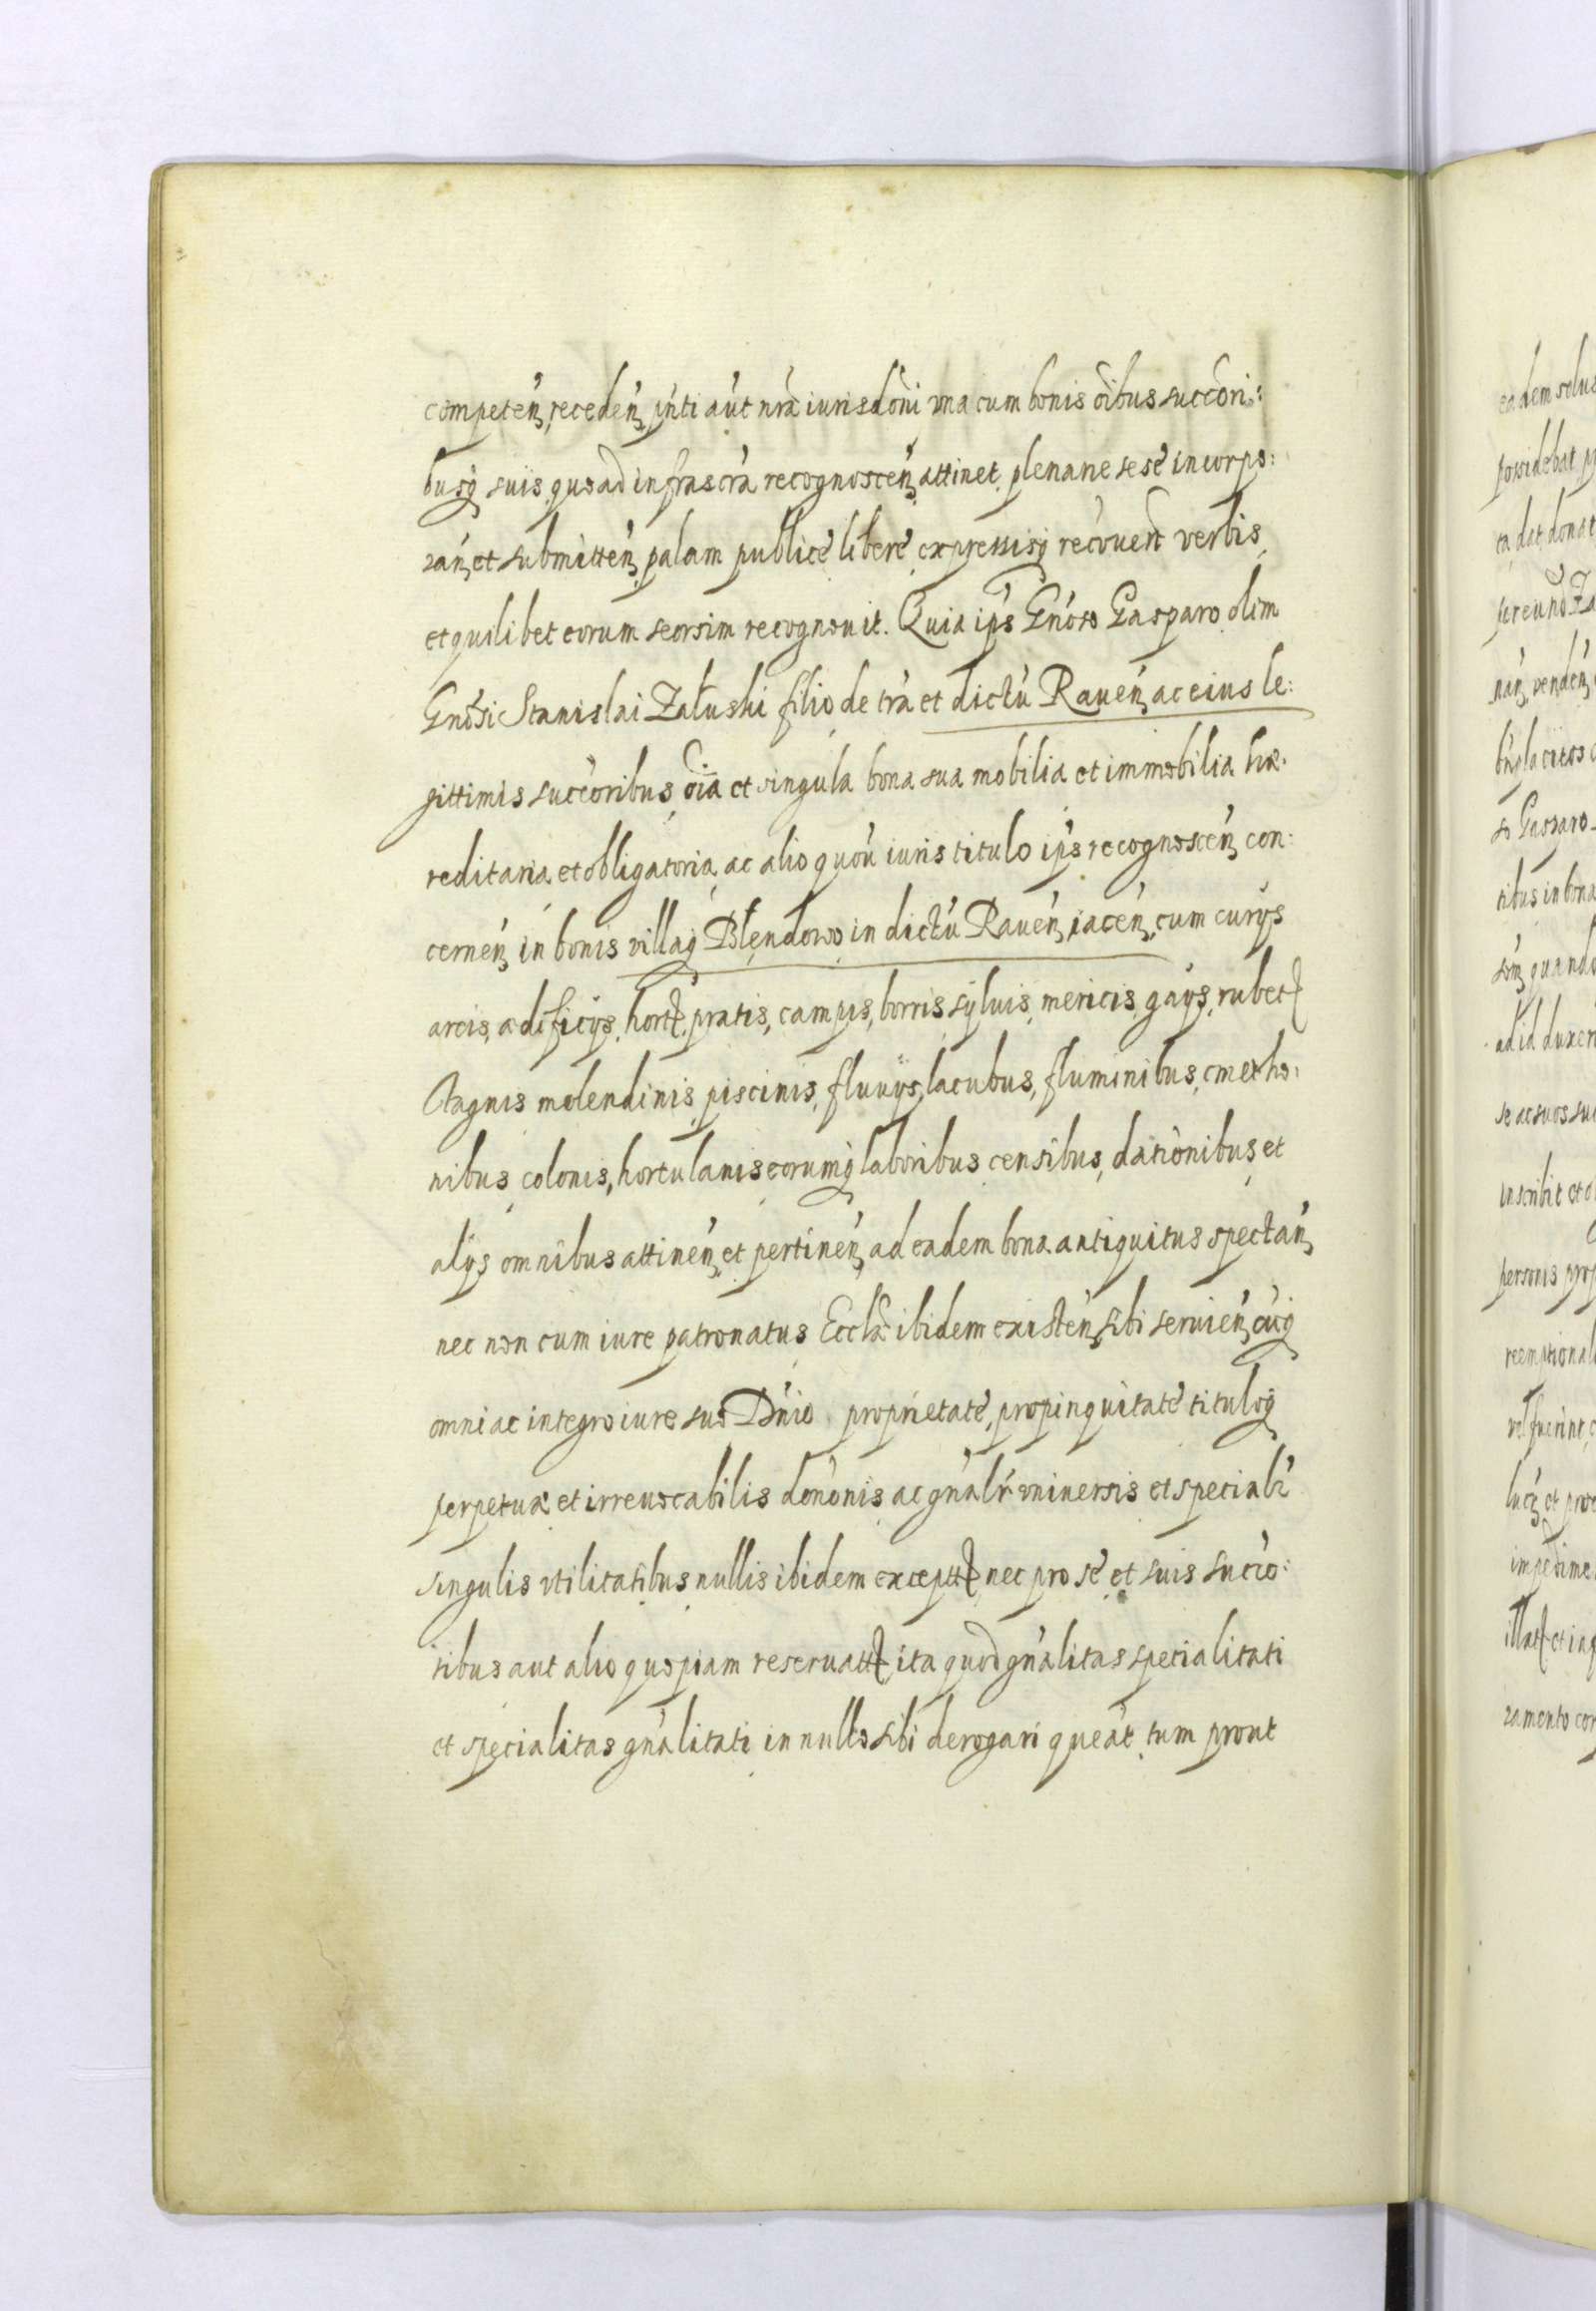 competeń, recedeń, pńti aut nrã iurisdoni una cum bonis oibus succori:
busq suis quo ad infrascra recognosceń attinet plenarie sese incorpo:
rań et submitteń palam publice libere expressisq recouert verbis
et quilibet eorum seorsim recognouit. Quia ips Gnoso Gasparo olim
Gnosi Stanislai Załuski filio de tra et dictu Raueń ac eius le:
gittimis succoribus oia et singula bona sua mobilia et immobilia hæ:
reditaria et obligatoria ac alio quou iuris titulo ips recognosceń con:
cerneń in bonis villaq Błendowo in dictu Raueń iaceń, cum curys
areis, ædificys, hort, pratis, campis, borris, syluis, mericis, gays, rubet
stagnis molendinis, piscinis, fluuys, lacubus, fluminibus, cmetho:
nibus colonis, hortulanis eorumq laboribus censibus, dationibus et
alys omnibus attineń et pertineń ad eadem bona antiquitus spectań
nec non cum iure patronatus Ecclæ ibidem existeń sibi seruień, cuq
omni ac integro iure suo Dnio proprietate, propinquitate tituloq
perpetuæ et irreuocabilis dononis ac gnalr vniuersis et specialr
singulis vtilitatibus nullis ibidem except nec pro se et suis succo:
ribus aut alio quopiam reseruatt ita quod gnalitas specialitati
et specialitas gnalitati in nullo sibi derogari queat tum prout
eadem
possidebat
ta dat donat
nań vendeń
so Gasparo
tibus in bona
quando
ad id duxer
se ac suos suc
inscribit et o
personis prop
reemptional
vel fuerint
et pro
impedime
et in
ramento cor